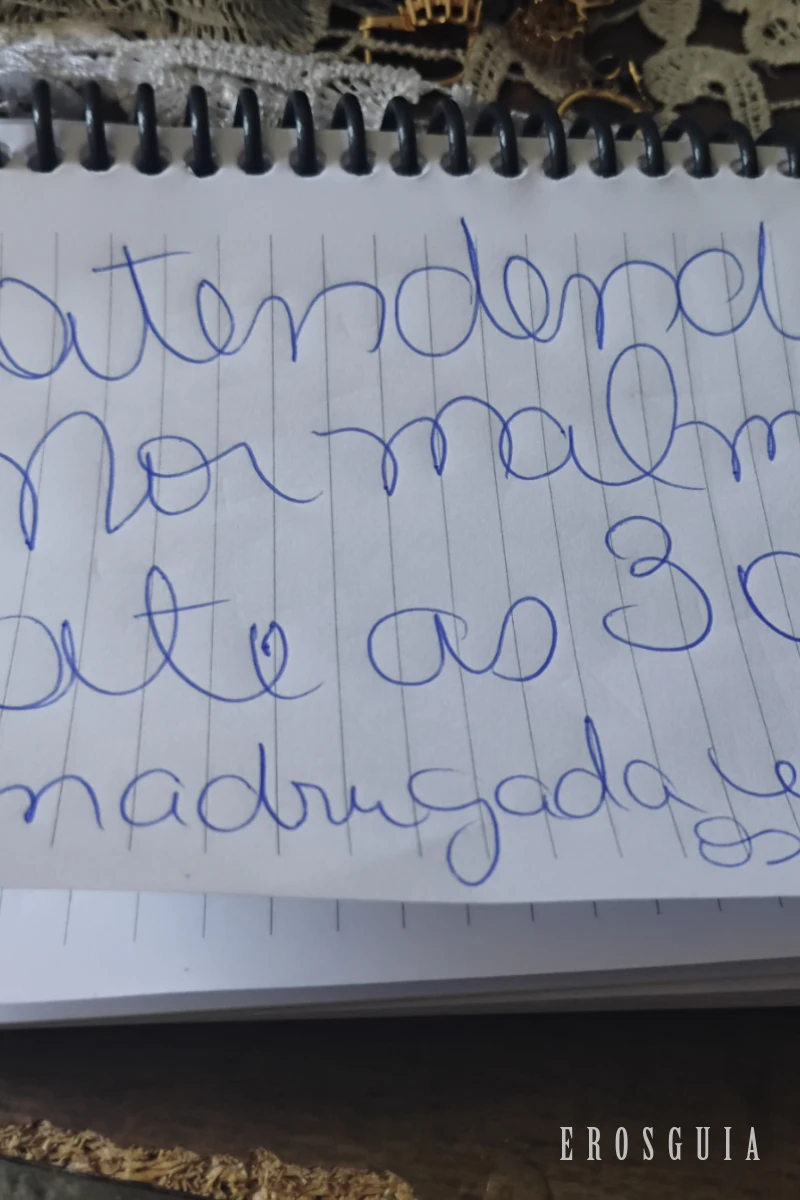 atendend
normalm
ate as 3
madrugada e
os
EROSGUIA